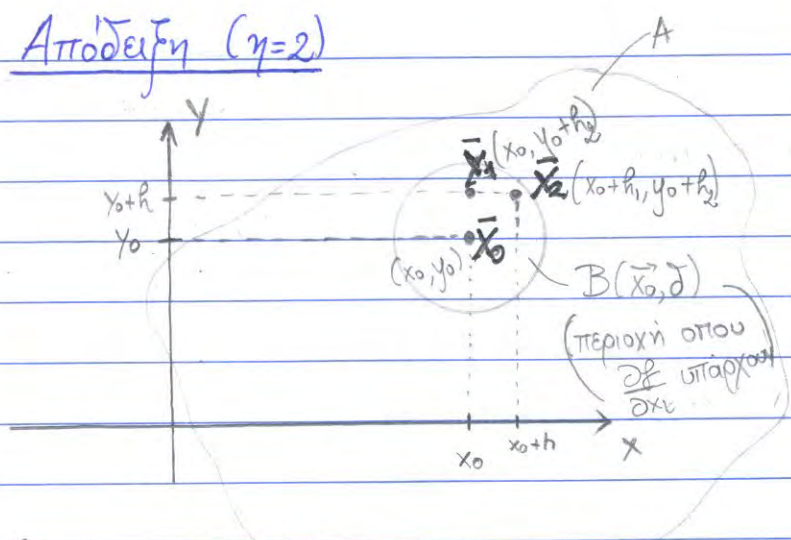 Απόδειξη (η=2)
A
Y
X̄₁(x₀, y₀+h₂)
y₀+h
X̄₂(x₀+h₁, y₀+h₂)
y₀
X̄₀
(x₀, y₀)
B(x⃗₀, δ)
(περιοχή οπου
∂f/∂xᵢ υπάρχουν)
x₀
x₀+h
X